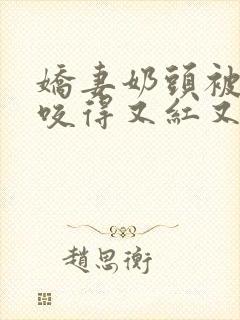 嬌妻奶頭被
咬得又紅又
趙思衡